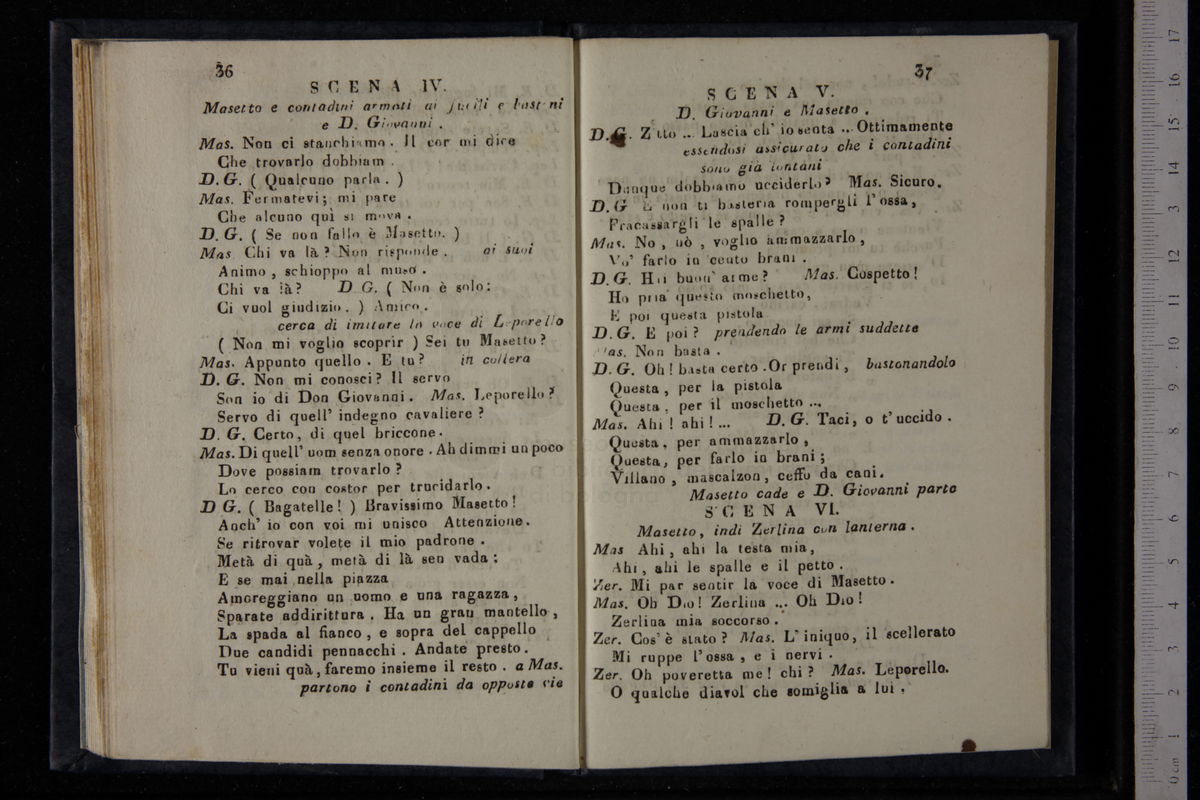 36
SCENA IV.
Masetto e contadini armati di fucili e bastoni
e D. Giovanni .
Mas. Non ci stanchiamo . Il cor mi dice
Che trovarlo dobbiam .
D. G. ( Qualcuno parla . )
Mas. Fermatevi ; mi pare
Che alcuno quì si mova .
D. G. ( Se non fallo è Masetto. )
Mas. Chi va là ? Non risponde . ai suoi
Animo , schioppo al muso .
Chi va là? D G. ( Non è solo:
Ci vuol giudizio . ) Amico .
cerca di imitare la voce di Leporello
( Non mi voglio scoprir ) Sei tu Masetto ?
Mas. Appunto quello . E tu? in collera
D. G. Non mi conosci? Il servo
Son io di Don Giovanni . Mas. Leporello ?
Servo di quell' indegno cavaliere ?
D. G. Certo, di quel briccone .
Mas. Di quell' uom senza onore . Ah dimmi un poco
Dove possiam trovarlo ?
Lo cerco con costor per trucidarlo .
D G. ( Bagatelle ! ) Bravissimo Masetto !
Anch' io con voi mi unisco Attenzione.
Se ritrovar volete il mio padrone .
Metà di quà , metà di là sen vada :
E se mai nella piazza
Amoreggiano un uomo e una ragazza ,
Sparate addirittura . Ha un gran mantello ,
La spada al fianco , e sopra del cappello
Due candidi pennacchi . Andate presto .
Tu vieni quà , faremo insieme il resto . a Mas.
partono i contadini da opposte vie
37
SCENA V.
D. Giovanni e Masetto .
D. G. Zitto ... Lascia ch' io senta ... Ottimamente
essendosi assicurato che i contadini
sono già lontani
Dunque dobbiamo ucciderlo ? Mas. Sicuro.
D. G E non ti basteria rompergli l' ossa ,
Fracassargli le spalle ?
Mas. No , nò , voglio ammazzarlo ,
Vo' farlo in cento brani .
D. G. Hai buon' arme ? Mas. Cospetto !
Ho pria questo moschetto,
E poi questa pistola
D. G. E poi ? prendendo le armi suddette
as. Non basta .
D. G. Oh ! basta certo . Or prendi , bastonandolo
Questa , per la pistola
Questa , per il moschetto ...
Mas. Ahi ! ahi ! ... D. G. Taci, o t' uccido .
Questa , per ammazzarlo ,
Questa, per farlo in brani ;
Villano , mascalzon , ceffo da cani.
Masetto cade e D. Giovanni parte
SCENA VI.
Masetto , indi Zerlina con lanterna .
Mas Ahi , ahi la testa mia ,
Ahi , ahi le spalle e il petto .
Zer. Mi par sentir la voce di Masetto .
Mas. Oh Dio! Zerlina ... Oh Dio !
Zerlina mia soccorso .
Zer. Cos' è stato ? Mas. L' iniquo, il scellerato
Mi ruppe l' ossa , e i nervi .
Zer. Oh poveretta me ! chi ? Mas. Leporello.
O qualche diavol che somiglia a lui ,